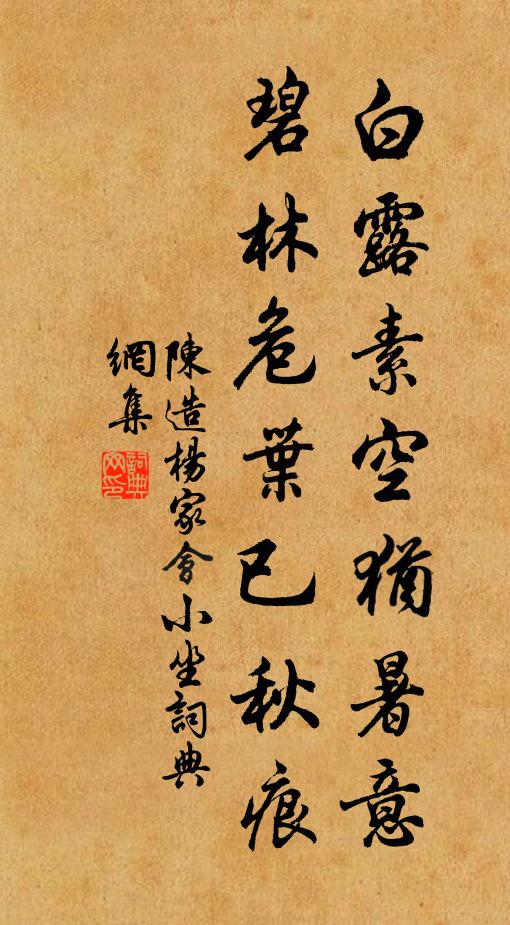 白露素空猶暑意
碧林危葉已秋痕
陳造楊家會小坐詞典
網集
詞典網印